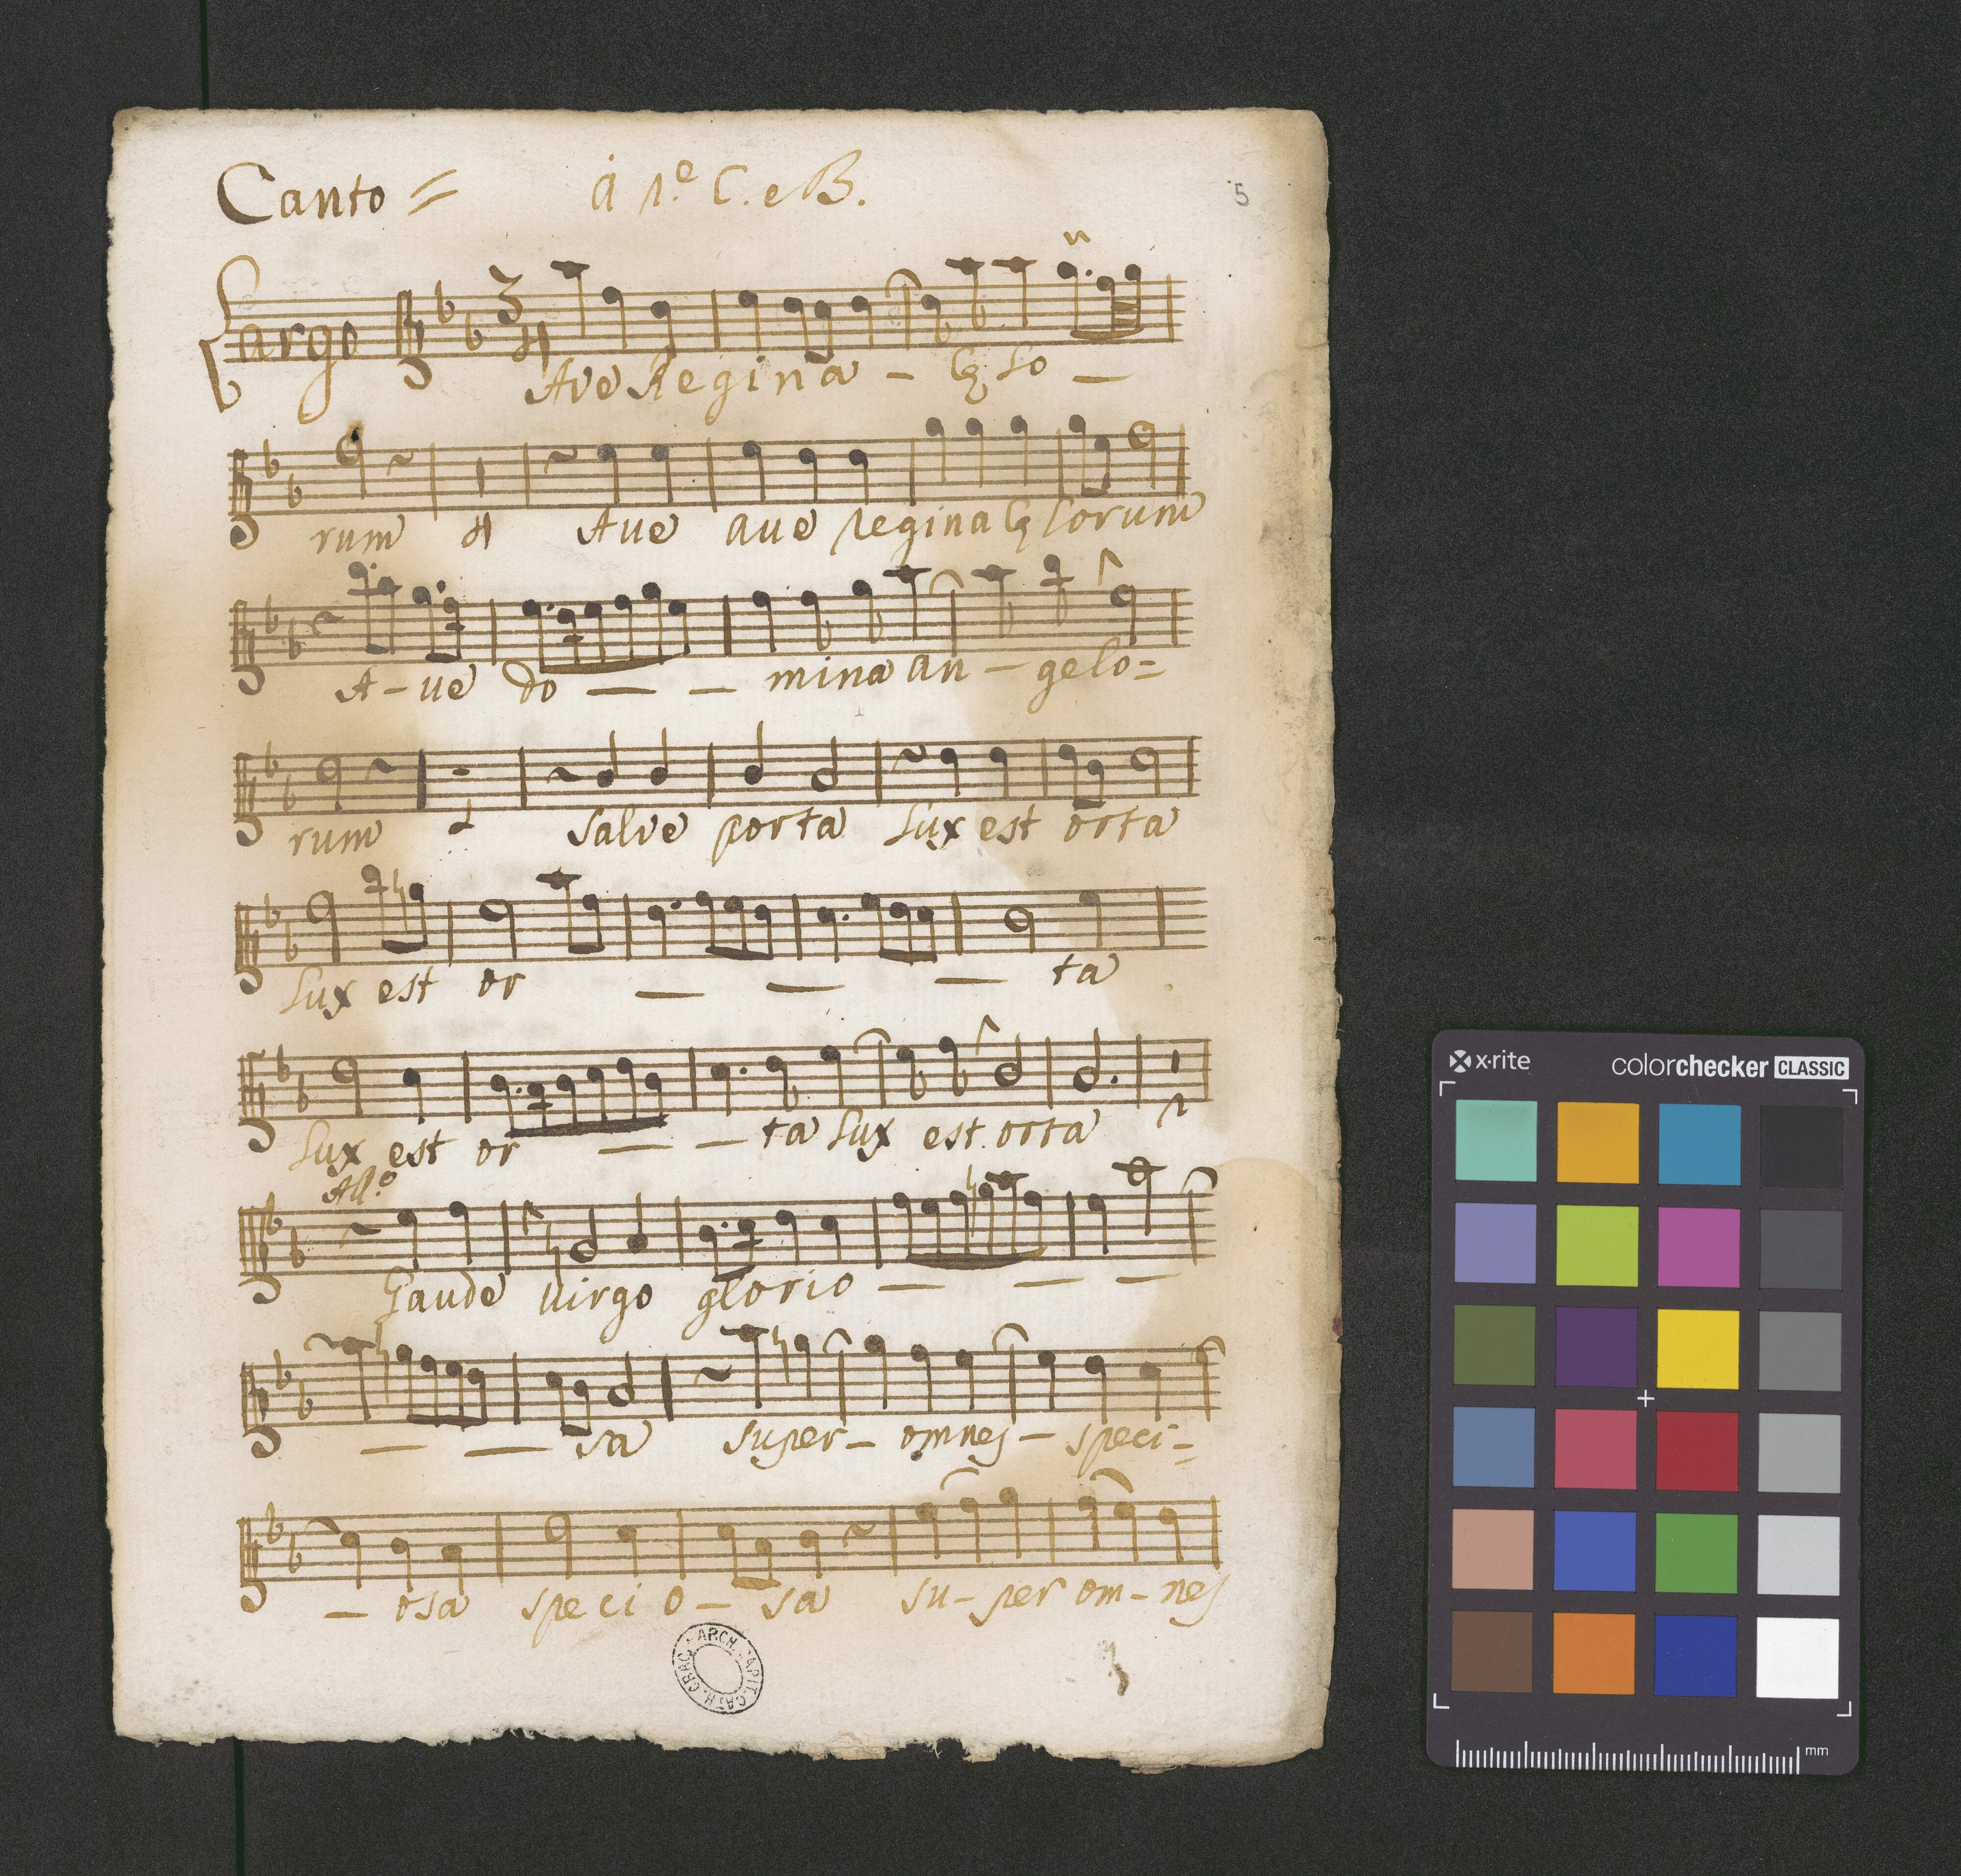 Canto = à 2.e C. e B.
5
Largo
Ave Regina - Cę lo -
rum 4 Aue aue regina Cęlorum
A - ue do - - mina an - gelo =
rum 2 Salve porta Lux est orta
Lux est or - - - ta
Lux est or - - ta Lux est orta
All.o
Gaude Uirgo glorio - - -
- - sa super - omnes - speci =
- osa speci o - sa su - per om - nes
ARCH. CAPIT. CATH. CRAC.
x·rite colorchecker CLASSIC
mm